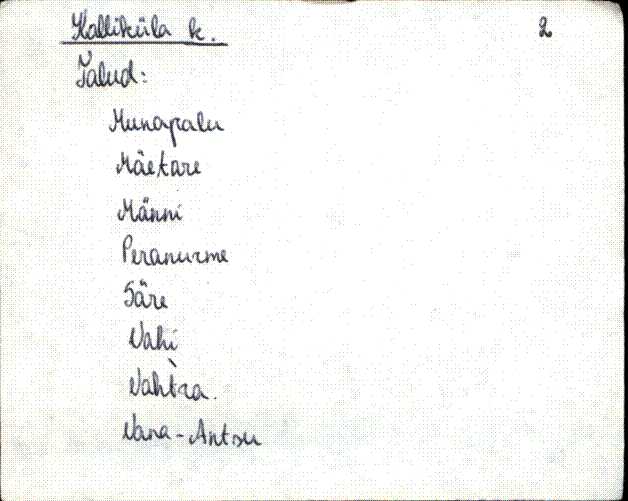 Kalliküla k. 2
Talud:
Munapalu
Mäetare
Männi
Peranurme
Säre
Vahi
Vahtra.
Vana-Antsu